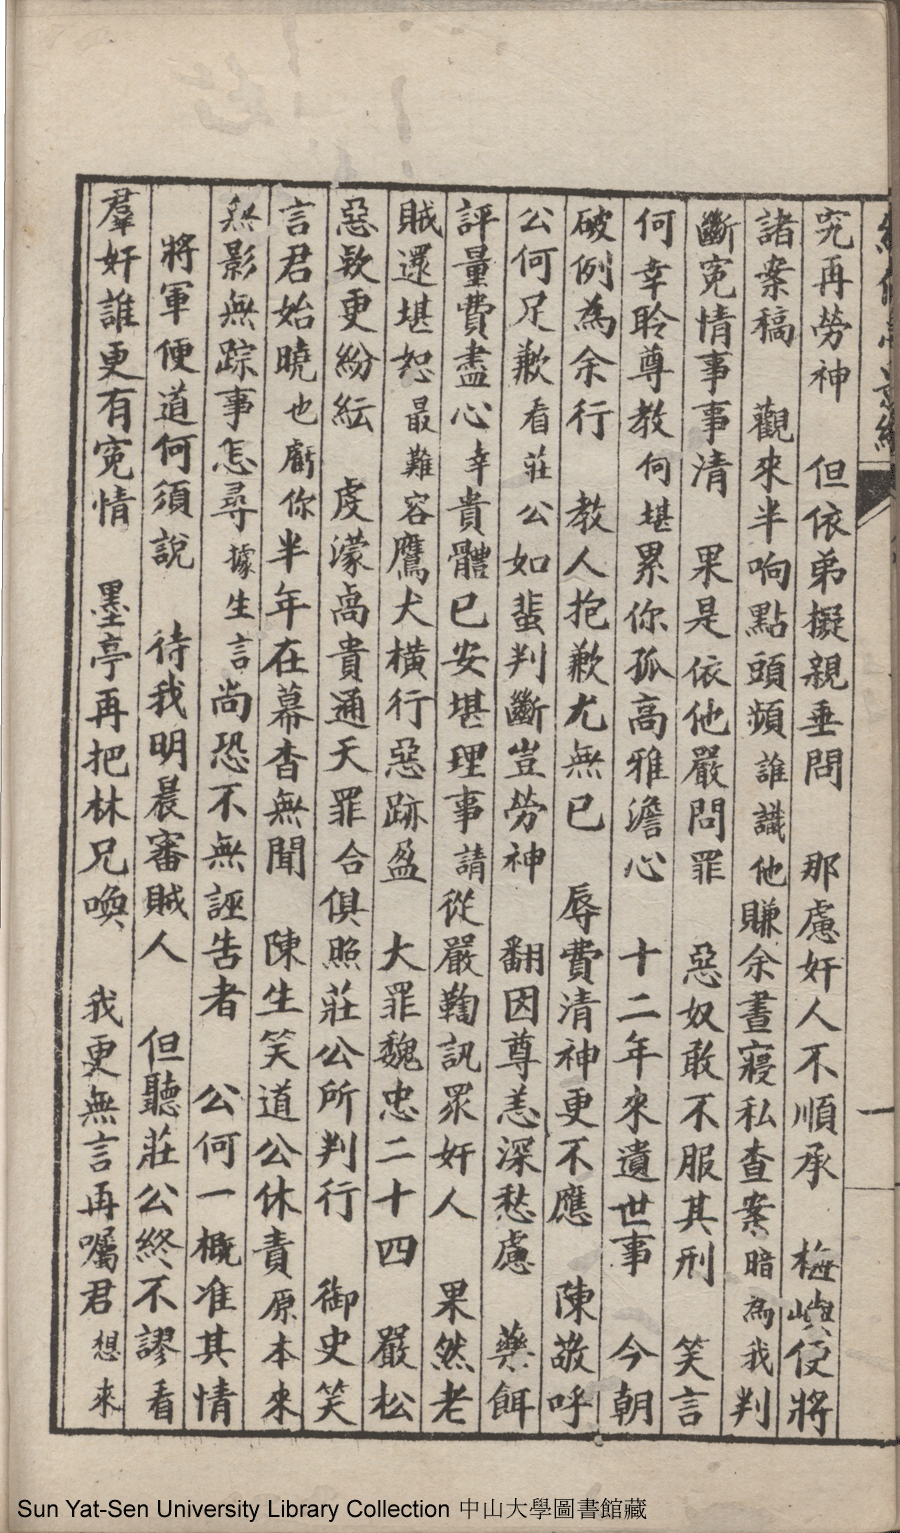 究再勞神　但依弟擬親垂問　那慮奸人不順承　梅嶼便將
諸案稿　觀來半响點頭頻誰識他賺余晝寢私查案暗為我判
斷寃情事事清　果是依他嚴問罪　惡奴敢不服其刑　笑言
何幸聆尊教何堪累你孤高雅澹心　十二年來遺世事　今朝
破例為余行　教人抱歉尤無已　辱費清神更不應　陳敬呼
公何足歉看莊公如蜚判斷豈勞神　翻因尊恙深愁慮　藥餌
評量費盡心幸貴體已安堪理事請從嚴鞫訊眾奸人　果然老
賊還堪恕最難容鷹犬橫行惡跡盈　大罪魏忠二十四　嚴松
惡款更紛紜　虔濛卨貴通天罪合俱照莊公所判行　御史笑
言君始曉也虧你半年在幕杳無聞　陳生笑道公休責原本來
無影無踪事怎尋據生言尚恐不無誣告者　公何一概准其情
將軍便道何須說　待我明晨審賊人　但聽莊公終不謬看
羣奸誰更有寃情　墨亭再把林兄喚　我更無言再囑君想來
Sun Yat-Sen University Library Collection 中山大學圖書館藏